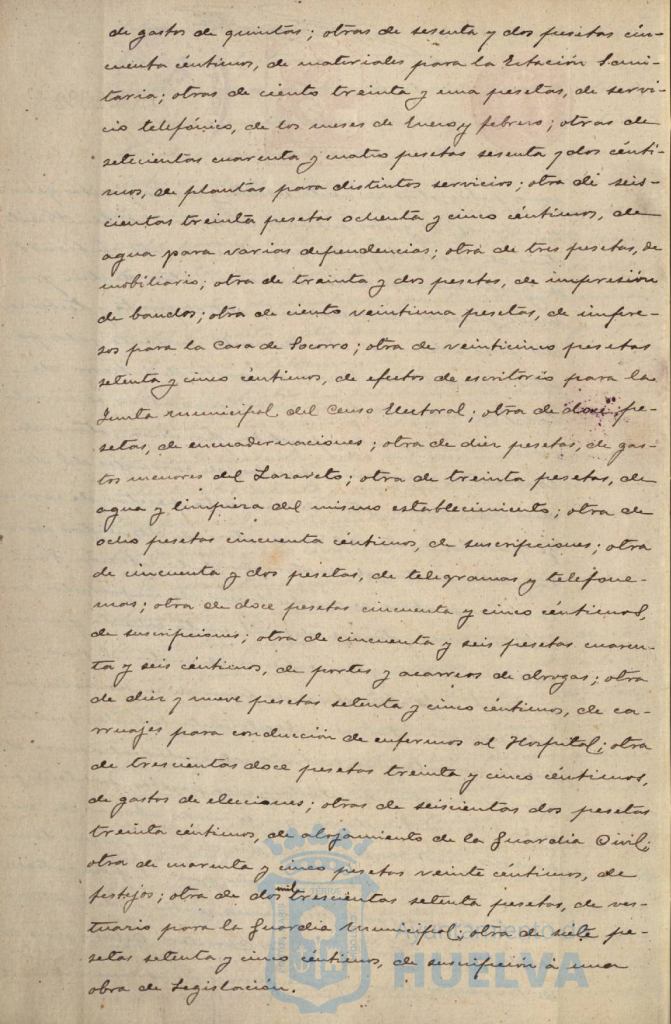 de gastos de quintas; otras de sesenta y dos pesetas cin-
cuenta céntimos, de materiales para la Estación Sani-
taria; otras de ciento treinta y una pesetas, de servi-
cio telefónico, de los meses de Enero y febrero; otras de
setecientas cuarenta y cuatro pesetas sesenta y dos cénti-
mos, de plantas para distintos servicios; otra de seis-
cientas treinta pesetas ochenta y cinco céntimos, de
agua para varias dependencias; otra de tres pesetas, de
mobiliario; otra de treinta y dos pesetas, de impresión
de bandos; otra de ciento veintiuna pesetas, de impre-
sos para la Casa de Socorro; otra de veinticinco pesetas
setenta y cinco céntimos, de efectos de escritorio para la
Junta municipal del Censo Electoral; otra de doce pe-
setas, de encuadernaciones; otra de diez pesetas, de gas-
tos menores del Lazareto; otra de treinta pesetas, de
agua y limpieza del mismo establecimiento; otra de
ocho pesetas cincuenta céntimos, de suscripciones; otra
de cincuenta y dos pesetas, de telegramas y telefone-
mas; otra de doce pesetas cincuenta y cinco céntimos,
de suscripciones; otra de cincuenta y seis pesetas cuaren-
ta y seis céntimos, de portes y acarreos de drogas; otra
de diez y nueve pesetas setenta y cinco céntimos, de ca-
rruajes para conducción de enfermos al Hospital; otra
de trescientas doce pesetas treinta y cinco céntimos,
de gastos de elecciones; otras de seiscientas dos pesetas
treinta céntimos, de alojamiento de la Guardia Civil;
otra de cuarenta y cinco pesetas veinte céntimos, de
festejos; otra de dos mil trescientas setenta pesetas, de ves-
tuario para la Guardia Municipal; otra de siete pe-
setas setenta y cinco céntimos, de suscripción á una
obra de Legislación.
Ayuntamiento de
HUELVA